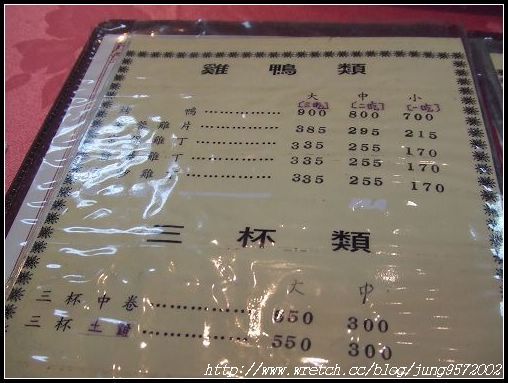 雞鴨類
大 中 小
[三吃] [二吃] [一吃]
鴨 900 800 700
雞片 385 295 215
雞丁 335 255 170
雞丁 335 255 170
雞 335 255 170
三杯類
大 中
三杯中卷 550 300
三杯土雞 550 300
http://www.wretch.cc/blog/jung9572002